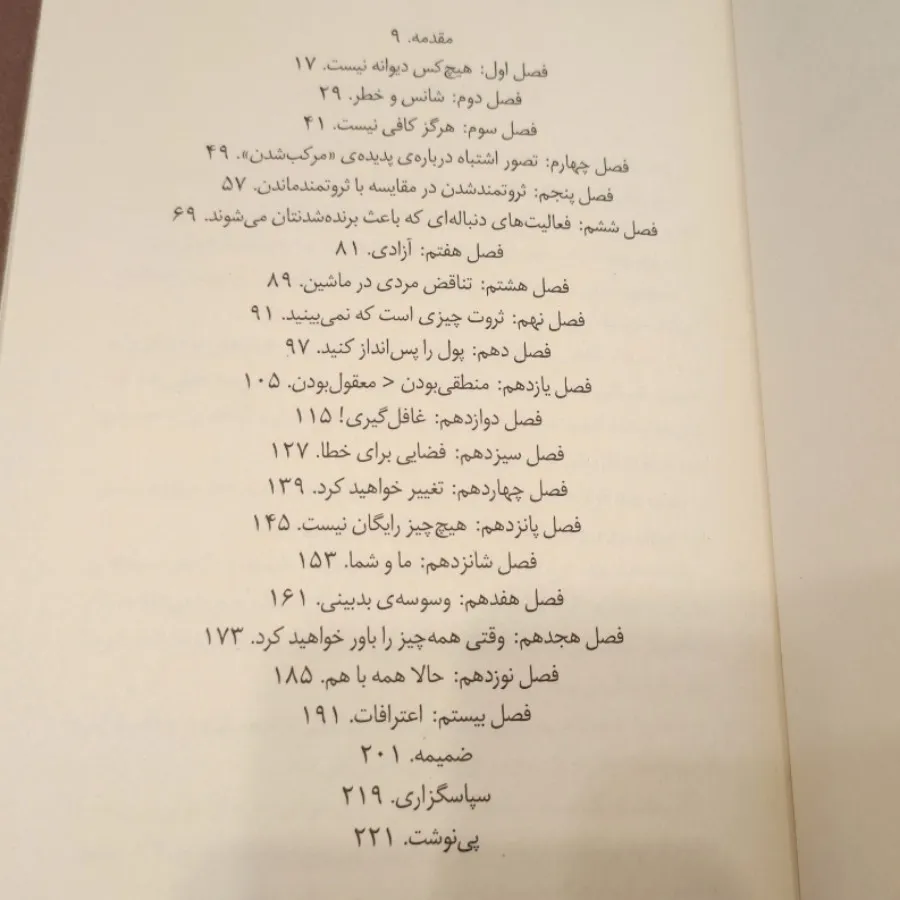 مقدمه. ۹
فصل اول: هیچ‌کس دیوانه نیست. ۱۷
فصل دوم: شانس و خطر. ۲۹
فصل سوم: هرگز کافی نیست. ۴۱
فصل چهارم: تصور اشتباه درباره‌ی پدیده‌ی «مرکب‌شدن». ۴۹
فصل پنجم: ثروتمندشدن در مقایسه با ثروتمندماندن. ۵۷
فصل ششم: فعالیت‌های دنباله‌ای که باعث برنده‌شدنتان می‌شوند. ۶۹
فصل هفتم: آزادی. ۸۱
فصل هشتم: تناقض مردی در ماشین. ۸۹
فصل نهم: ثروت چیزی است که نمی‌بینید. ۹۱
فصل دهم: پول را پس‌انداز کنید. ۹۷
فصل یازدهم: منطقی‌بودن < معقول‌بودن. ۱۰۵
فصل دوازدهم: غافل‌گیری! ۱۱۵
فصل سیزدهم: فضایی برای خطا. ۱۲۷
فصل چهاردهم: تغییر خواهید کرد. ۱۳۹
فصل پانزدهم: هیچ‌چیز رایگان نیست. ۱۴۵
فصل شانزدهم: ما و شما. ۱۵۳
فصل هفدهم: وسوسه‌ی بدبینی. ۱۶۱
فصل هجدهم: وقتی همه‌چیز را باور خواهید کرد. ۱۷۳
فصل نوزدهم: حالا همه با هم. ۱۸۵
فصل بیستم: اعترافات. ۱۹۱
ضمیمه. ۲۰۱
سپاسگزاری. ۲۱۹
پی‌نوشت. ۲۲۱